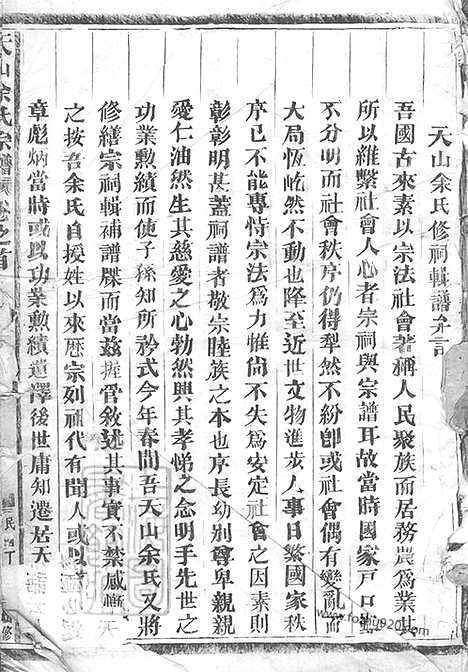 天山余氏修祠輯譜弁言
吾國古來素以宗法社會著稱人民聚族而居務農為業其
所以維繫社會人心者宗祠與宗譜耳故當時國家戶口
不分明而社會秩序仍得犁然不紛即或社會偶有變亂而
大局恆屹然不動也降至近世文物進步人事日繁國家秩
序已不能專恃宗法為力惟尚不失為安定社會之因素則
彰彰明甚蓋祠譜者敬宗睦族之本也序長幼別尊卑親親
愛仁油然生其慈愛之心勃然興其孝悌之念明乎先世之
功業勳績而使子孫知所矜式今年春間吾天山余氏又將
修繕宗祠輯補譜牒而當茲握管敘述其事實不禁感慨
之按吾余氏自授姓以來歷宗列祖代有聞人或以
章彪炳當時或以功業勳績遺澤後世庸知遷居天
天山余氏宗譜 卷之首
民
修
www.foshu920.com